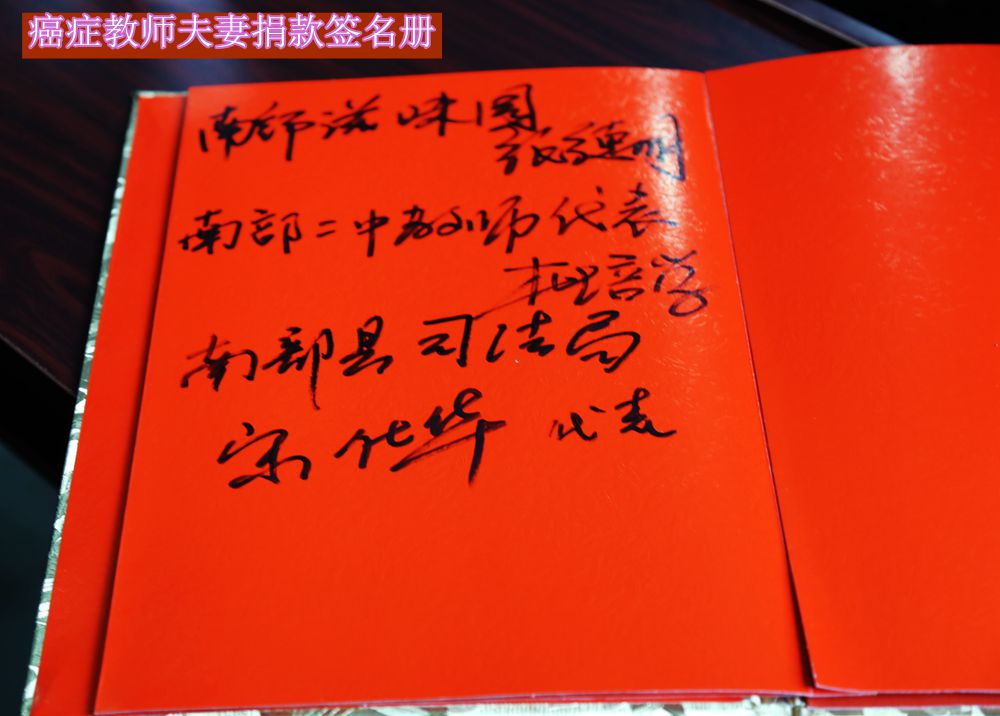 癌症教师夫妻捐款签名册
南师滋味园
张德明
南部二中教师代表
培学
南部县司法局
宋化华 代表